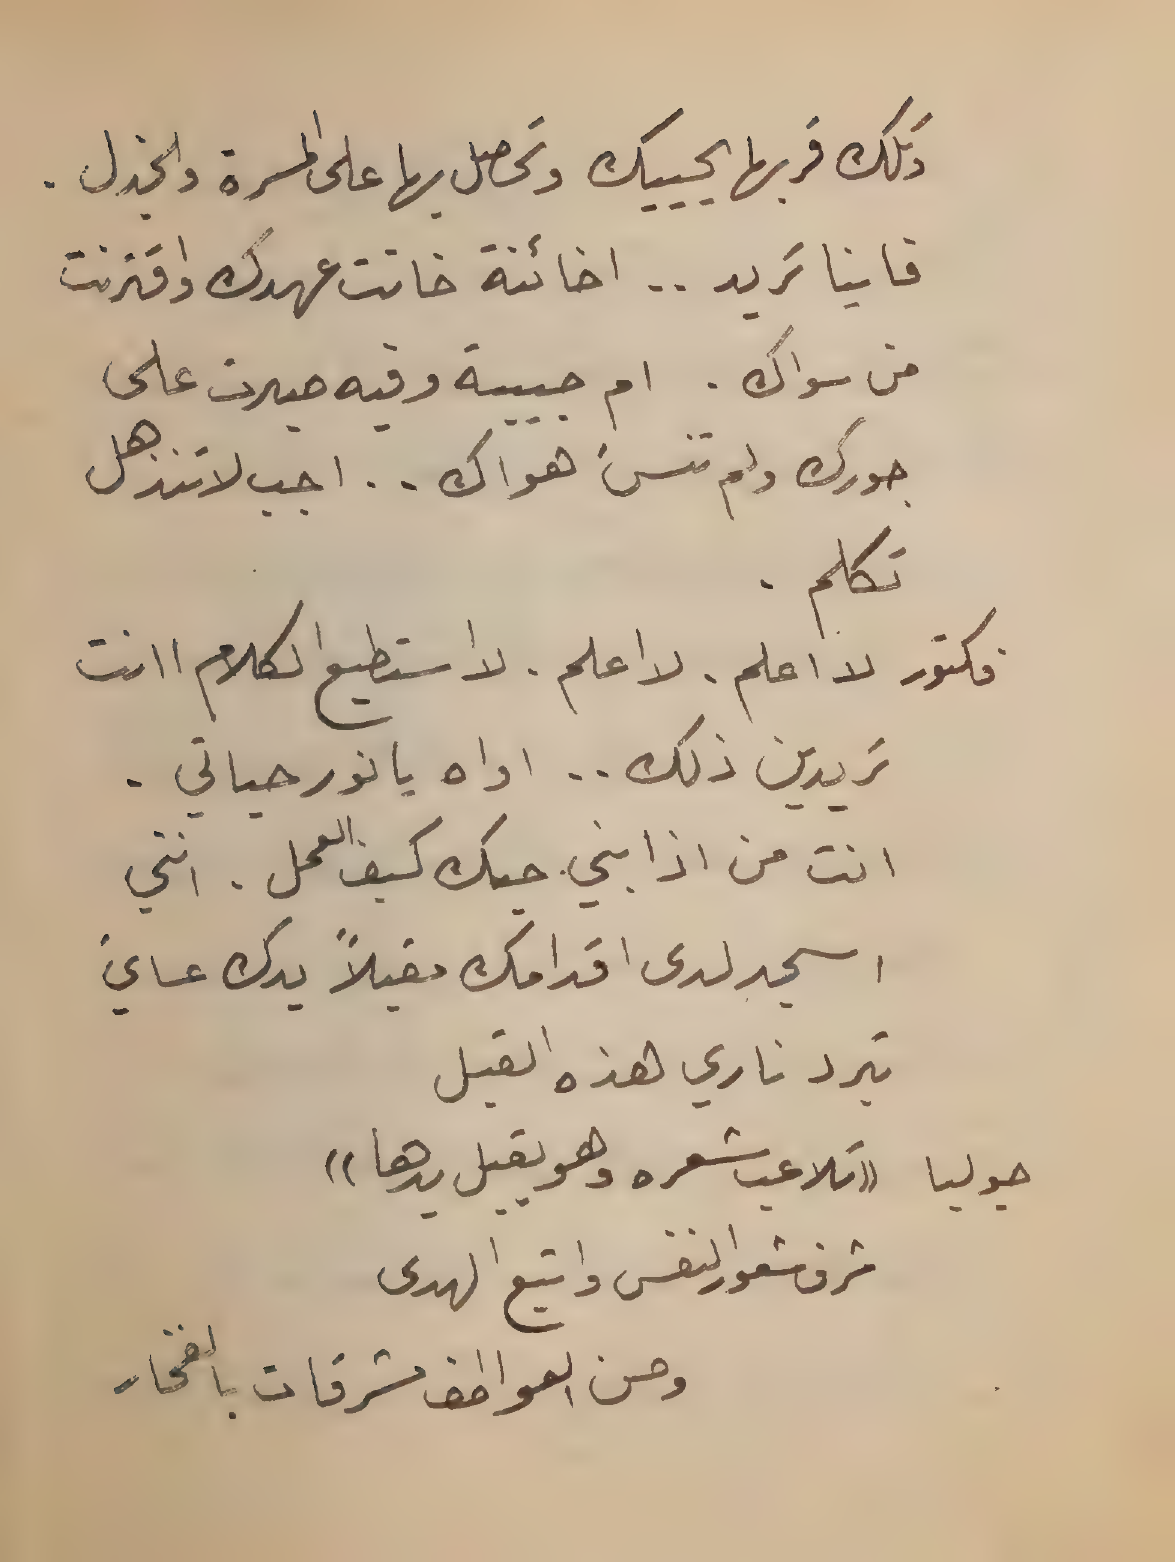 وتلك قربها يحييك وتحاصل بها على المسرة والجذل .
فاينا تريد .. اخائنة خانت عهدك واقترنت
من سواك . ام حبيبة وفيه صبرت على
جورك ولم تنس هواك .. اجب لا تنذهل
تكلم .
فكتور لا اعلم . لا اعلم . لا استطيع الكلام اانت
تريدين ذلك .. اواه يا نور حياتي .
انت من اذابني حبك كيف العمل . انني
اسجد لدى اقدامك مقبلاً يدك عساي
تبرد ناري هذه القبل
جوليا «تلاعب شعره وهو يقبل يدها»
شرف شعور النفس واتبع الهدى
وصن العواطف مشرقات بالفخار